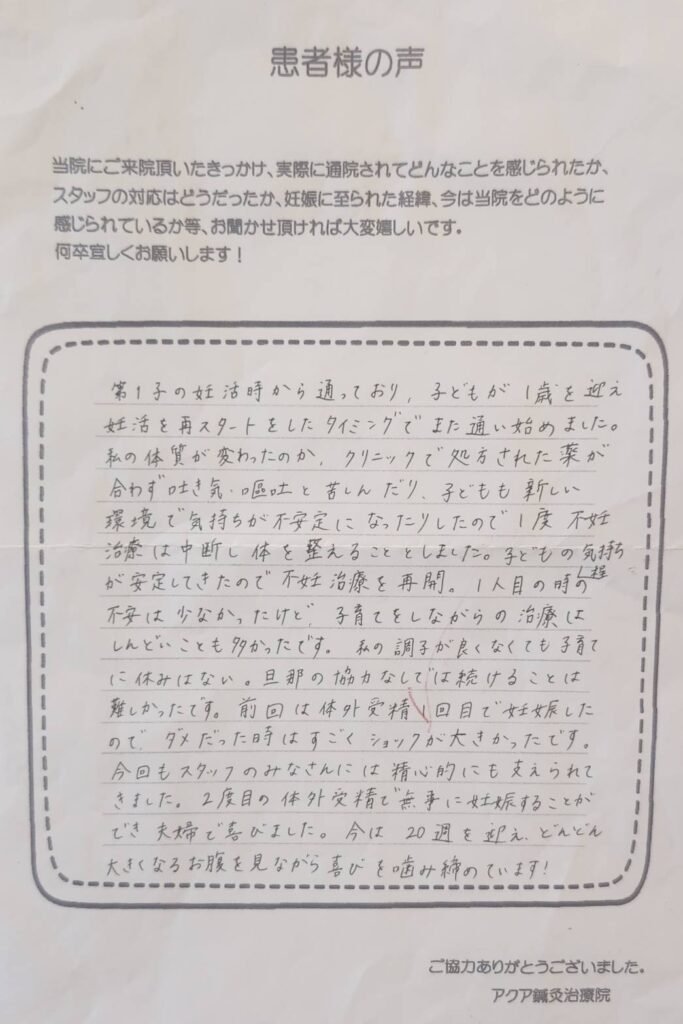 患者様の声
当院にご来院頂いたきっかけ、実際に通院されてどんなことを感じられたか、
スタッフの対応はどうだったか、妊娠に至られた経緯、今は当院をどのように
感じられているか等、お聞かせ頂ければ大変嬉しいです。
何卒宜しくお願いします！
第1子の妊活時から通っており、子どもが1歳を迎え
妊活を再スタートをしたタイミングでまた通い始めました。
私の体質が変わったのか、クリニックで処方された薬が
合わず吐き気・嘔吐と苦しんだり、子どもも新しい
環境で気持ちが不安定になったりしたので1度不妊
治療は中断し体を整えることとしました。子どもの気持ち
が安定してきたので不妊治療を再開。1人目の時の程
不安は少なかったけど、子育てをしながらの治療は
しんどいことも多かったです。私の調子が良くなくても子育て
に休みはない。旦那の協力なしでは続けることは
難しかったです。前回は体外受精1回目で妊娠した
ので、ダメだった時はすごくショックが大きかったです。
今回もスタッフのみなさんには精心的にも支えられて
きました。2度目の体外受精で無事に妊娠することが
でき夫婦で喜びました。今は20週を迎え、どんどん
大きくなるお腹を見ながら喜びを噛み締めています!
ご協力ありがとうございました。
アクア鍼灸治療院